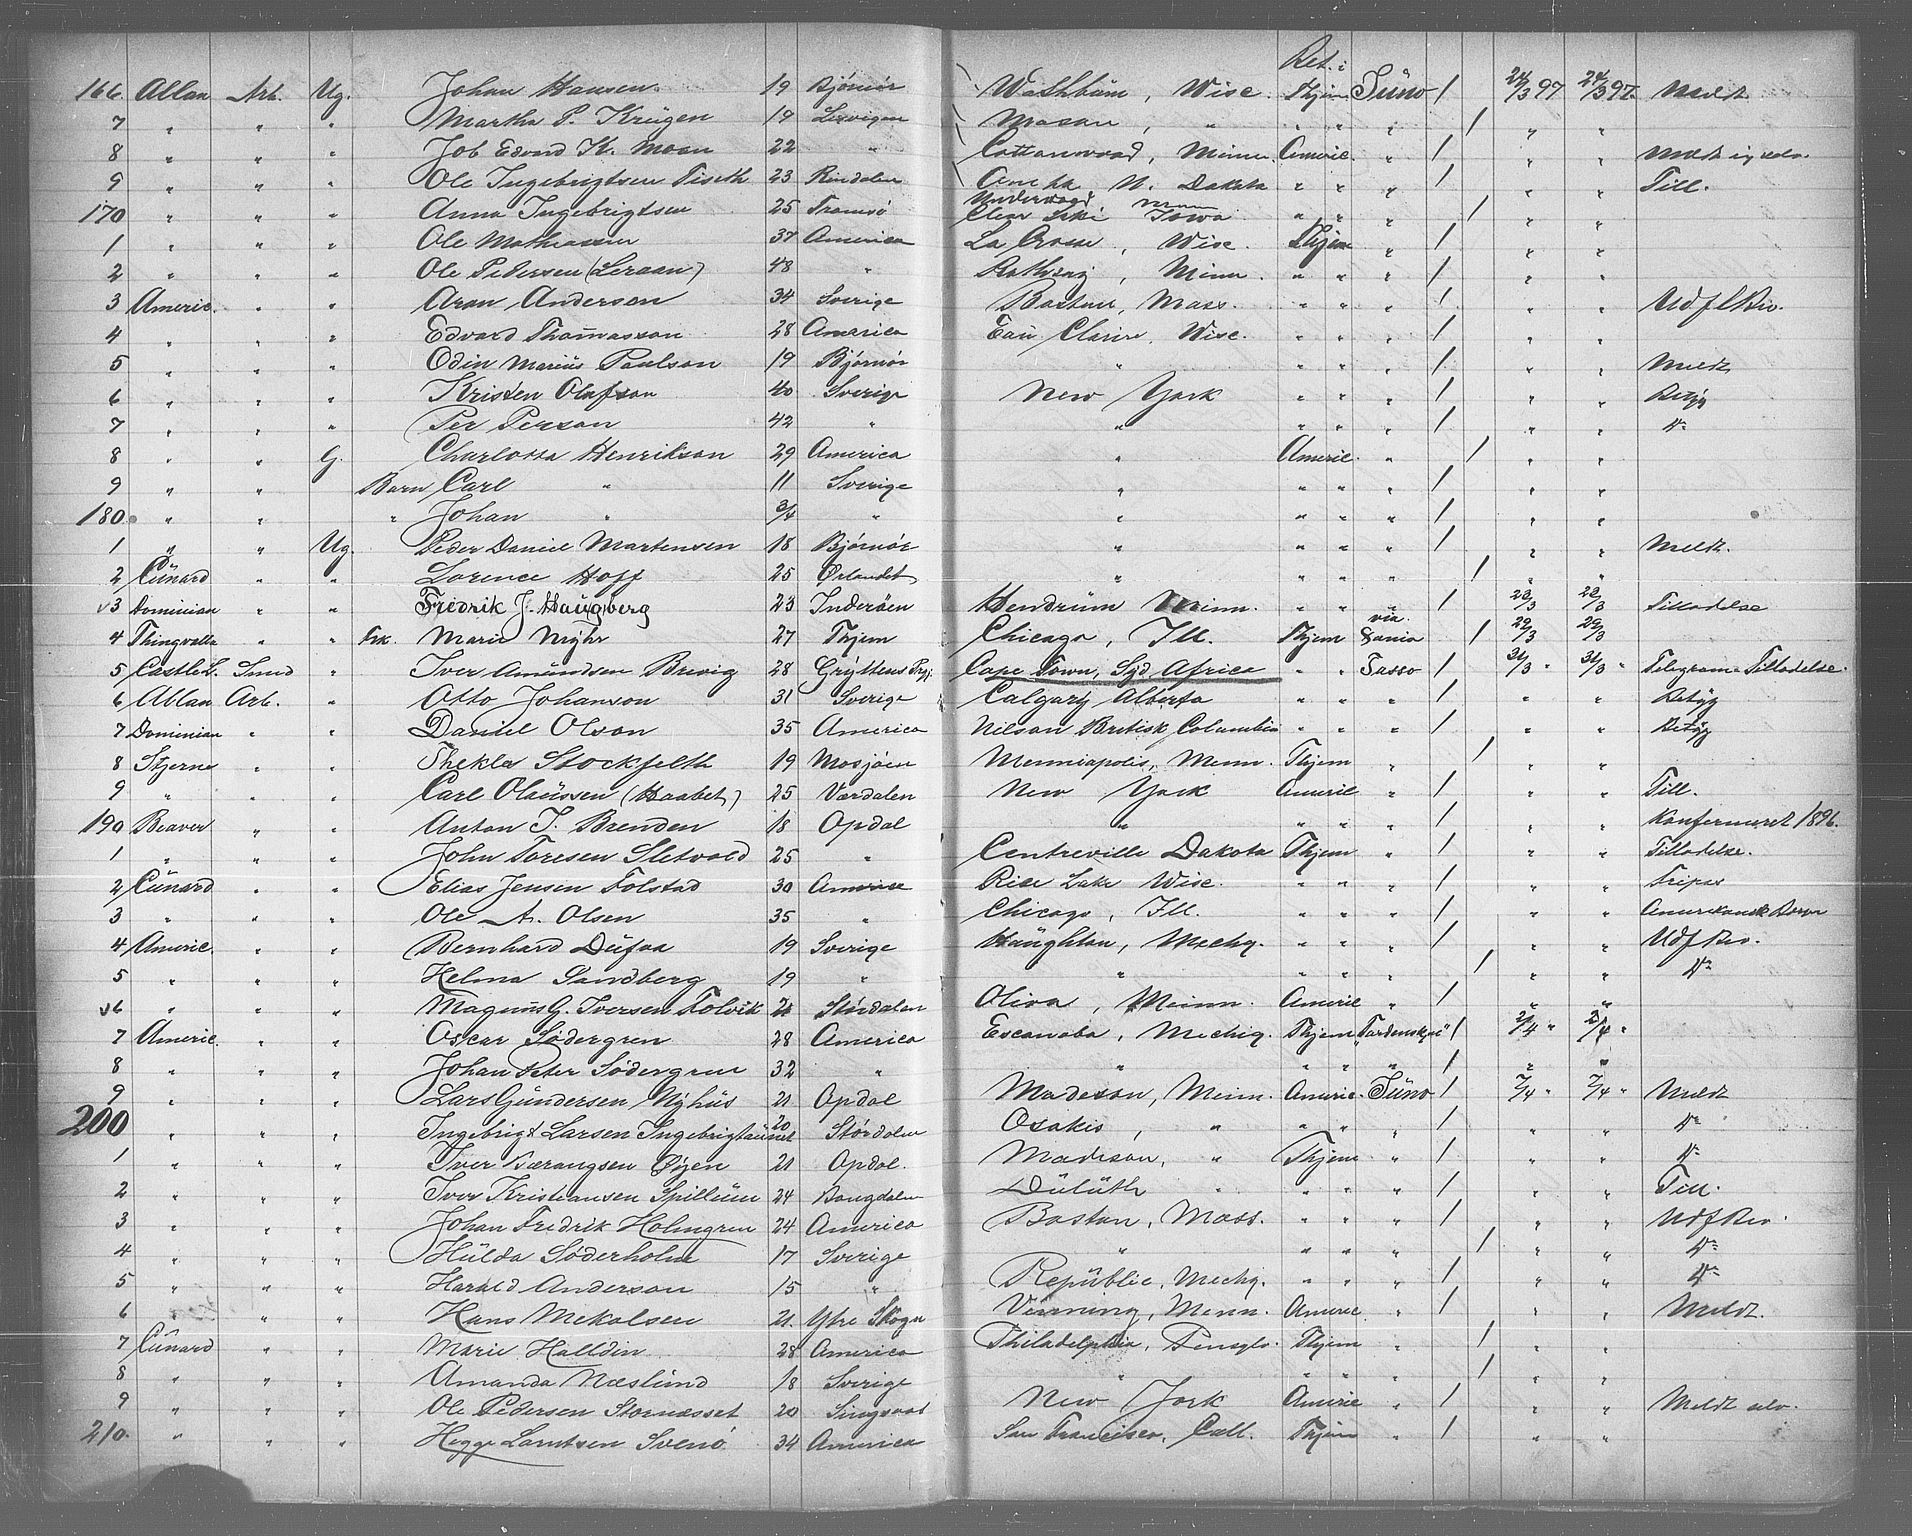 Bet. i
166. Allan Arb. Ug. Johan Hansen. 19 Bjørnør Washburn, Wisc. Thjem Juno / 24/3 97 24/3 97. Meldt
7 " " " Martha P. Krügen 19 " Mason, " " " " / " "
8 " " " Job Edvard K. Moan 22 " Cottonwood, Minn. Americ. " " / " " Meldt
9 " " " Ole Ingebrigtsen Fiseth 23 Rindalen N. Dakota " " " / " " Till.
Underwood Minn
170 " " " Anna Ingebrigtsen 25 Tromsø Clear Lake Iowa " " " / " "
1 " " " Ole Mathiassen 37 America La Crosse, Wisc. Thjem " / " "
2 " " " Ole Pedersen (Leraan) 48 " Minn. " " " / " "
3 Americ. " " Aron Andersen 34 Sverige Boston, Mass. " " " / " " Udfl Bev.
4 " " " Edvard Thomasson 28 America Eau Claire, Wisc. " " " / " "
5 " " " Odin Marius Paulson 19 Bjørnør " " " " / " " Meldt
6 " " " Kristen Olafson 40 Sverige New York " " " / " " Betyg
7 " " " Per Person 42 " " " " " / " " Do
8 " " G. Charlotta Henrikson 29 America " Americ. " / " "
9 " " Barn Carl " 11 Sverige " " " " / " "
180. " " " Johan " 3/4 " " " " " / " "
1 " " Ug. Peder Daniel Martensen 18 Bjørnør " " " " / " " Meldt.
2 Cunard " " Lorence Hoff 25 Ørlandet " " " " / " "
3 Dominion " " Fredrik J. Haugberg 23 Inderøen Hendrum Minn. " " " / 23/3 23/3 Tilladelse
via
4 Thingvalla " " Frk. Marie Myhr 27 Thjem Chicago, Ill. Thjem Dania / 29/3 29/3
5 Castle L. Smed " Iver Amundsen Brevig 28 Gryttens Prgj. Cape Town, Syd Africa " " Tasso / 31/3 " 31/3 " Telegram Tilladelse.
6 Allan Arb. " Otto Johanson 31 Sverige Calgary Alberta " " " / " " Betyg
7 Dominion " " Daniel Olson 35 America Nilson Britisk Columbia " " " / " " Betyg
8 Stjerne " " Thekla Stockfelth 19 Mosjøen Menniapolis, Menn. Thjem " / " "
9 " " " Carl Olaussen (Haabet) 25 Værdalen New York Americ " / " " Till.
190 Beaver " " Anton I. Brenden 18 Opdal " " " " / " " Konfermeret 1896.
1 " " " John Toresen Sletvold 25 " Centreville Dakota Thjem " / " " Tilladelse.
2 Cunard " " Elias Jensen Folstad 30 America Rice Lake Wisc. " " " / " " Fripas
3 " " " Ole A. Olsen 35 " Chicago, Ill. " " " / " " Amerikansk
4 Americ. " " Bernhard Dufva 19 Sverige Haughton, Mechg. " " " / " " Udf Bev.
5 " " " Helma Sandberg 19 " " " " " / " " Do
6 " " " Magnus G. Iversen Folvik Størdalen Oliva, Minn. Americ " / " "
7 Americ. " " Oscar Södergren 28 America Escanaba, Mechig. Thjem Tordenskjold / 2/4 " 2/4 "
8 " " " Johan Peter Södergren 32 " " " " " / " "
9 " " " Lars Gundersen Nyhus 21 Opdal Madeson, Minn. Americ. Juno / 7/4 " 7/4 " Meldt
200 " " " Ingebrigt Larsen Ingebrigtaunet 20 Størdalen Osakis, " " " " / " " Do
1 " " " Iver Bærangsen Øyen 21 Opdal. Madison, " Thjem " " / " " Do
2 " " " Iver Kristiansen Spillum 24 Duluth " " " " / " " Till.
3 " " " Johan Fredrik Holmgren 24 America Boston, Mass. " " " / " " Udf Bev.
4 " " " Hulda Søderholm 17 Sverige " " " " / " " Do
5 " " " Harald Anderson 15 " Republic, Mechg. " " " / " " Do
6 " " " Hans Mekalsen 21. Ytre Skogn Menn. Americ. " / " " Meldt.
7 Cunard " " Marie Halldin 28 America Philadelphia, Pensylv. Thjem " / " "
8 " " " Amanda Næslund 18 Sverige " " " " / " "
9 " " " Ole Pedersen Stornæsset 20 Singsaas New York Americ " / " " Meldt selv.
210. " " " Hegge Larntsen Svenö 34 America San Francisco, Call. Thjem " / " "